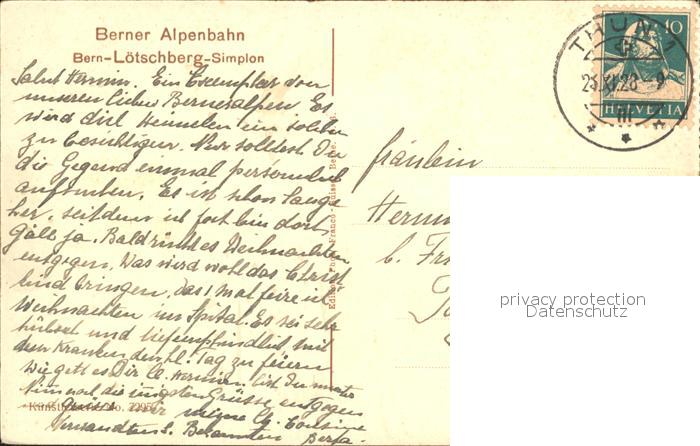 Berner Alpenbahn
Bern-Lötschberg-Simplon
Salut Hermin. Ein Exemplar von
unseren lieben Berneralpen. Es
wird dich wundern ein solchen
zu besichtigen. Nur solltest Du
die Gegend einmal persönlich
aufsuchen. Es ist schon lange
her, seitdem ich fort bin dort,
gäll ja. Bald rückt es Weihnachten
entgegen. Was wird wohl das Christ
kind bringen, das 1 mal feire ich
Weihnachten im Spital. Es sei sehr
hübsch und tiefempfindlich mit
den Kranken den hl. Tag zu feiern
Wie geht es Dir
Nimm noch die innigsten Grüsse entgegen
meine Cousine
Verwandten & Bekannten Berta.
Fräulein
THUN 1
25.XI.28-9
10
HELVETIA
privacy protection
Datenschutz